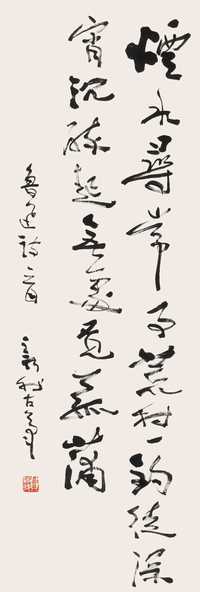 煙水尋常事荒村一釣徒深
宵沉醉起無處覓菰蒲
魯迅詩